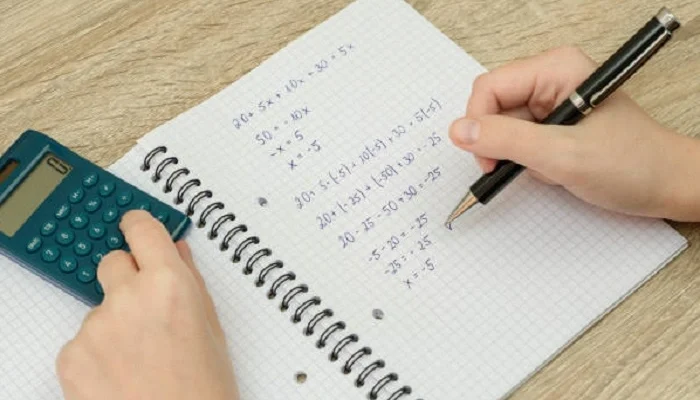 20+ 5x + 10x + 30 = 5x
50 = -10x
-x = 5
x = -5
20+ 5·(-5) + 10(-5) + 30 = 5(-5)
20+ (-25) + (-50) + 30 = -25
20 - 25 - 50 + 30 = -25
-5 - 20 = -25
-25 = -25
x = -5